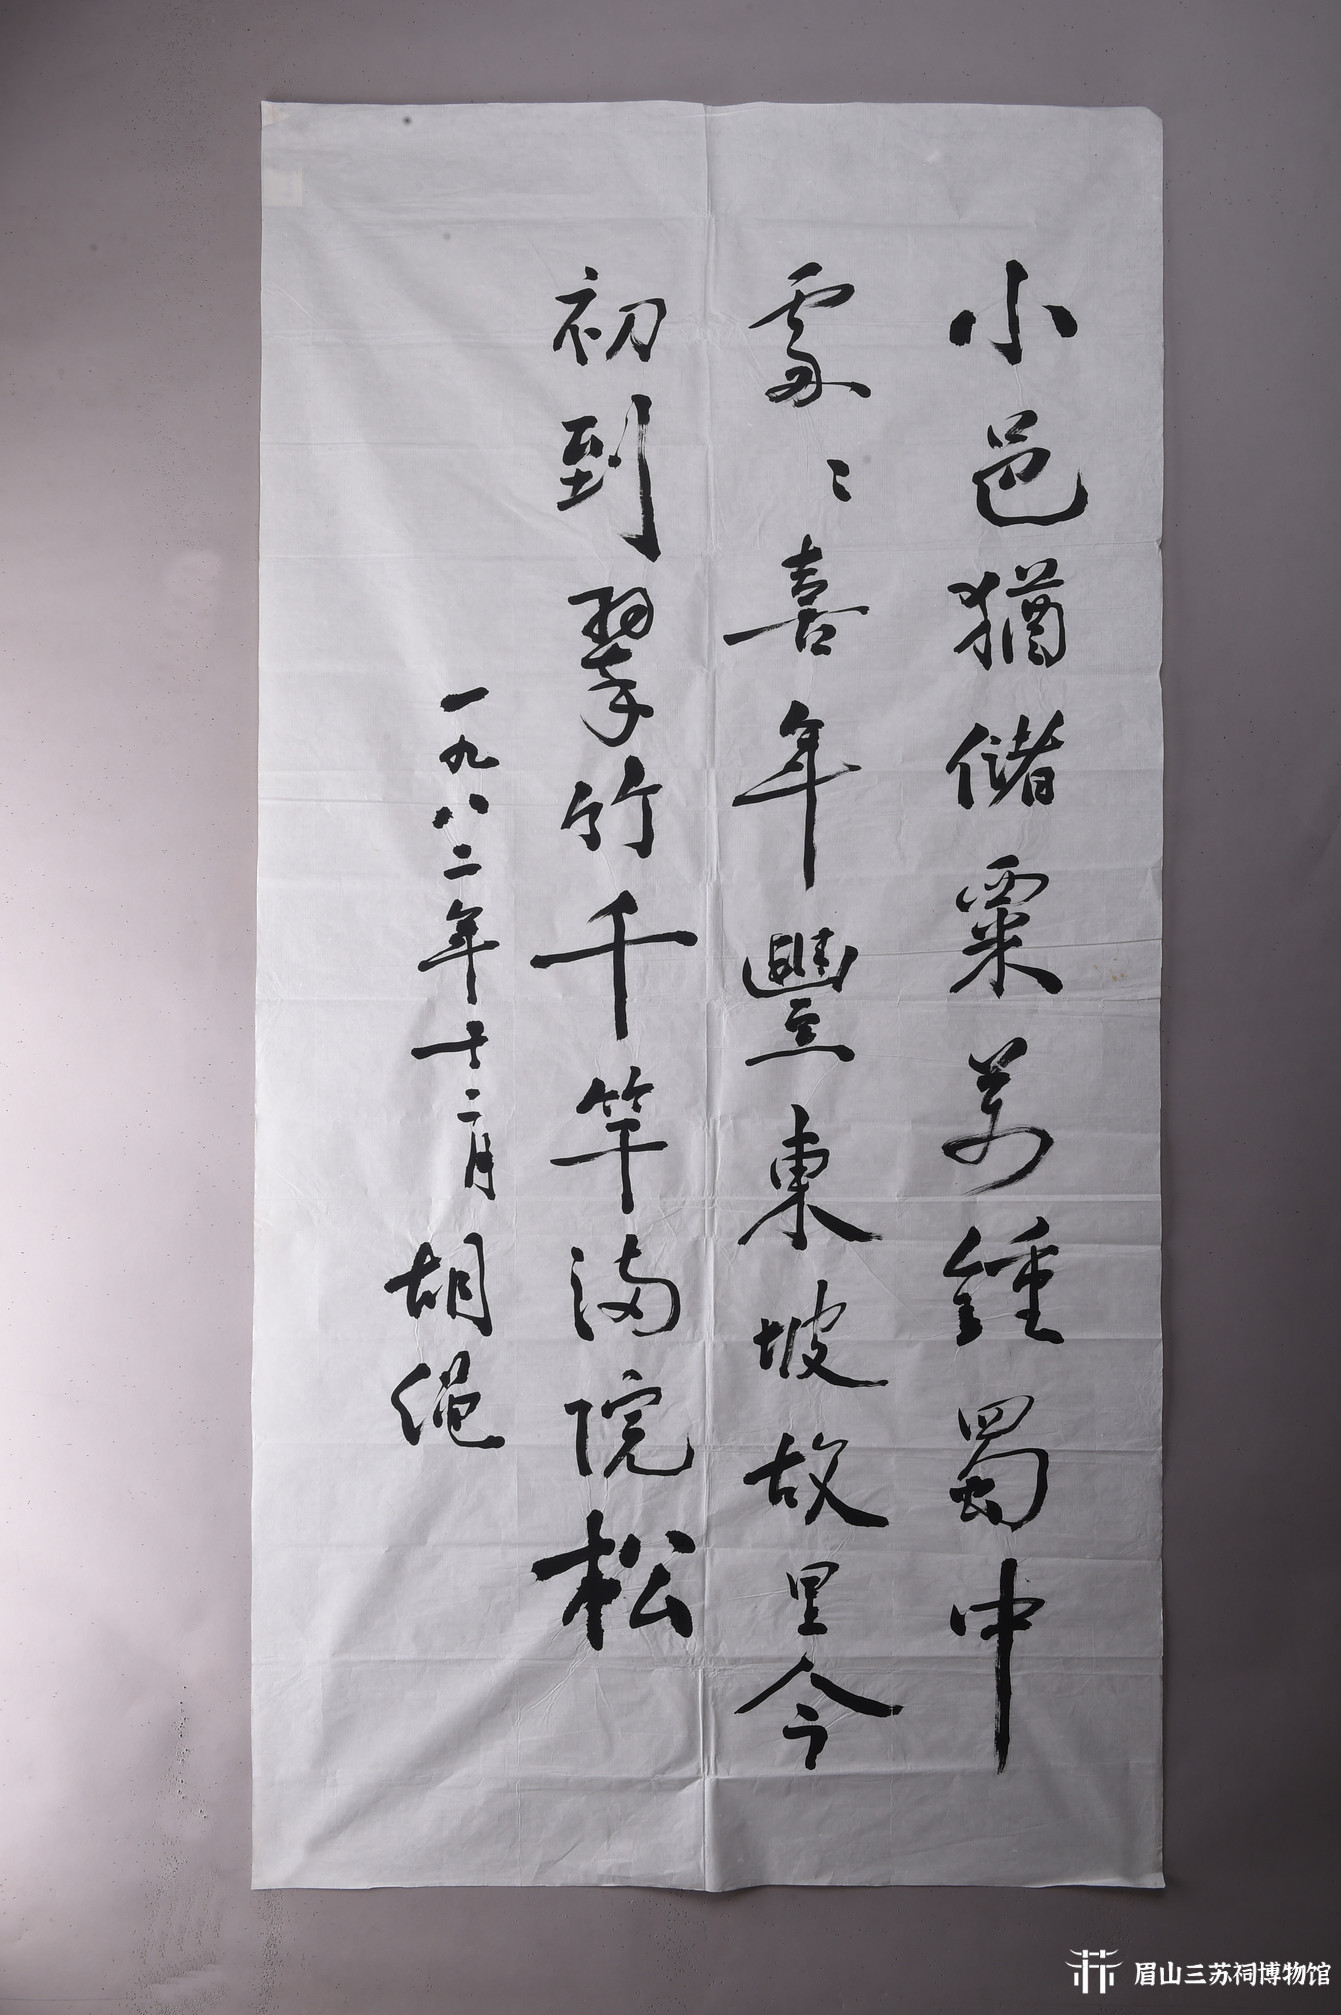 小邑猶儲粟萬鍾蜀中
處〻喜年豐東坡故里今
初到翠竹千竿满院松
一九八二年十二月胡绳
眉山三苏祠博物馆